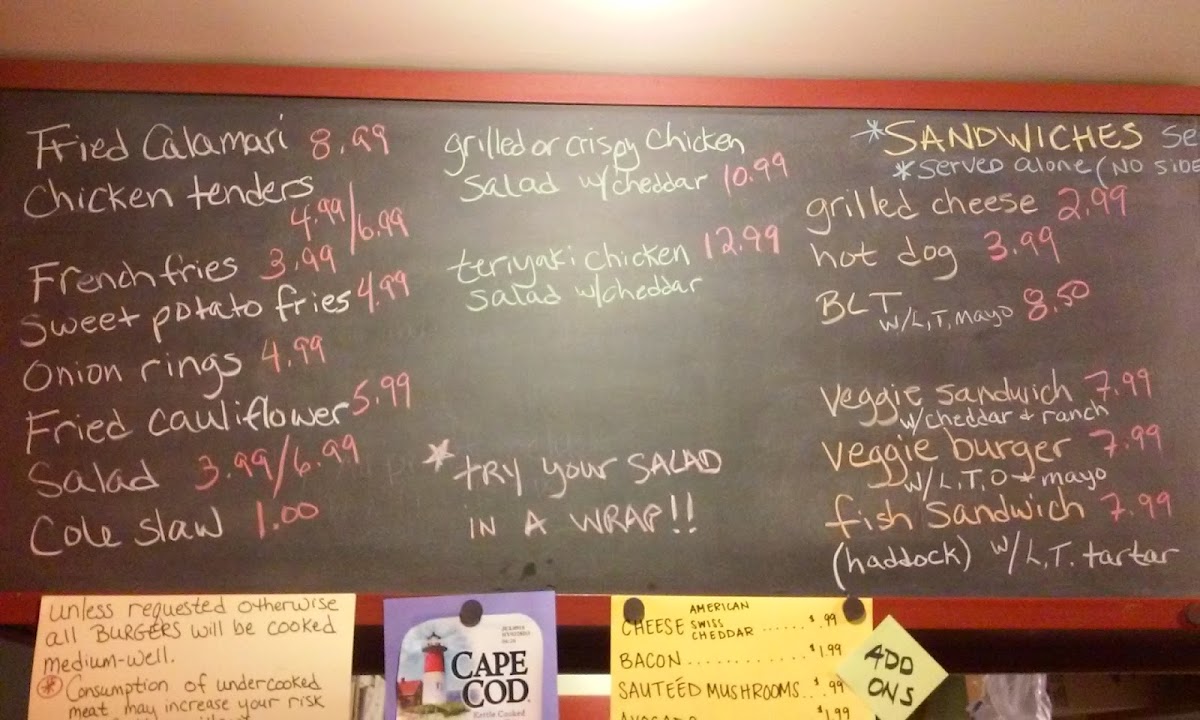 Fried Calamari 8.99
Chicken tenders
4.99/6.99
French fries 3.99
Sweet potato fries 4.99
Onion rings 4.99
Fried cauliflower 5.99
Salad 3.99/6.99
Cole slaw 1.00
grilled or crispy chicken
salad w/cheddar 10.99
teriyaki chicken 12.99
salad w/cheddar
*TRY your SALAD
IN A WRAP!!
*SANDWICHES
*served alone (NO SIDE
grilled cheese 2.99
hot dog 3.99
BLT w/L,T,mayo 8.50
Veggie sandwich 7.99
w/cheddar & ranch
veggie burger 7.99
w/L,T,O + mayo
fish sandwich 7.99
(haddock) w/L,T. tartar
unless requested otherwise
all BURGERS will be cooked
medium-well.
* Consumption of undercooked
meat may increase your risk
CAPE
COD
Kettle Cooked
CHEESE AMERICAN
SWISS
CHEDDAR ...... $.99
BACON............ $1.99
SAUTEÉD MUSHROOMS..$.99
$1.99
ADD
ONS